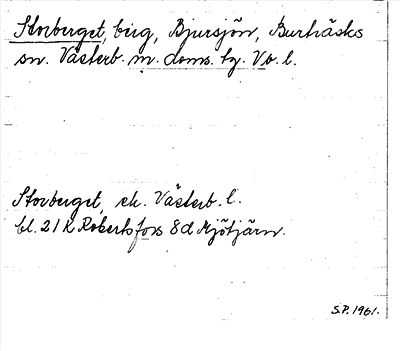 Storberget, berg, Bjursjön, Burträsks
sn. Västerb. m. doms. tg. Vb. l.
Storberget, ek. Västerb. l.
bl. 21 K Robertsfors 8d Mjötjärn.
S.P. 1961.